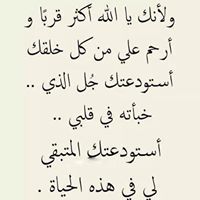 ولأنك يا الله أكثر قربًا و
أرحم علي من كل خلقك
أستودعتك جُل الذي ..
خبأته في قلبي ..
أستودعتك المتبقي
لي في هذه الحياة .